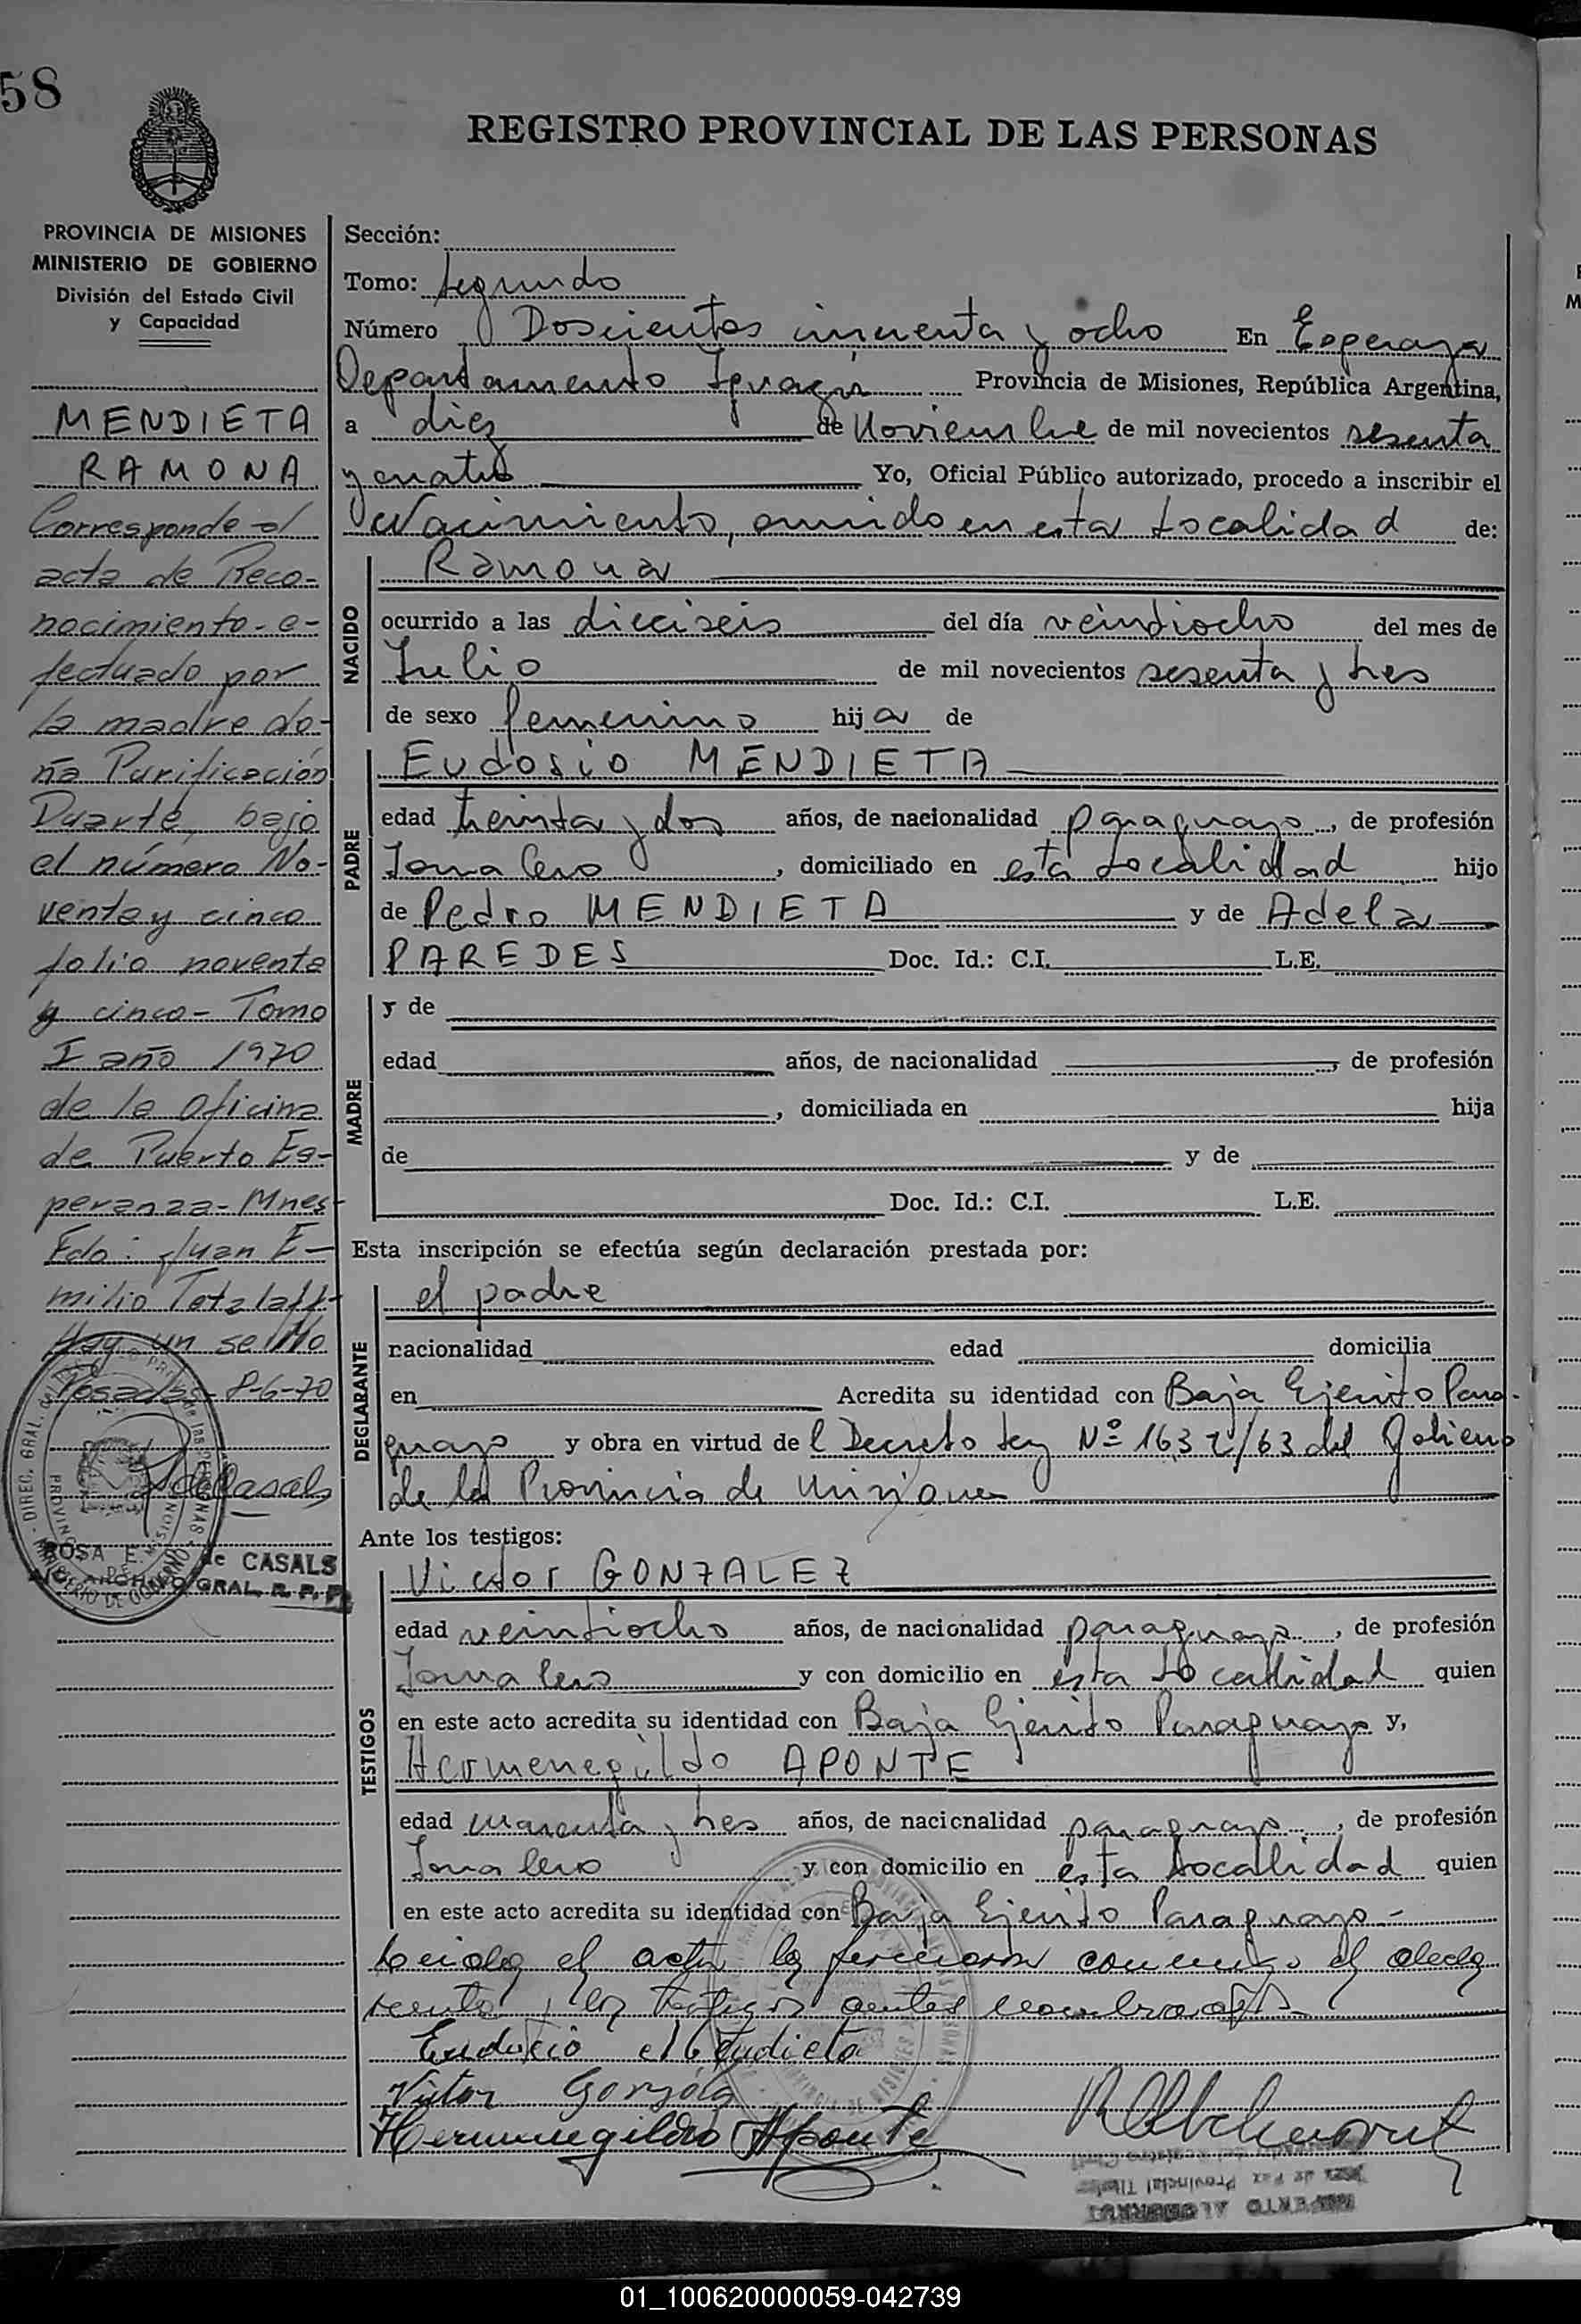 58
REGISTRO PROVINCIAL DE LAS PERSONAS
PROVINCIA DE MISIONES
MINISTERIO DE GOBIERNO
División del Estado Civil
y Capacidad
MENDIETA
RAMONA
Corresponde al
acta de Reco-
nocimiento-e-
fectuado por
la madre do-
ña Purificación
Duarte, bajo
el número No-
venta y cinco
folio noventa
y cinco- Tomo
I año 1970
de la Oficina
de Puerto Es-
peranza-Mnes-
Fdo: Juan E-
milio Tetzlaff-
Hay un sello
Posadas-8-6-70
ROSA E. de CASALS
GRAL. R. P. P.
Sección:
Tomo: Segundo
Número Doscientos cincuenta y ocho En Esperanza
Departamento Iguazú Provincia de Misiones, República Argentina,
a diez de Noviembre de mil novecientos sesenta
y cuatro Yo, Oficial Público autorizado, procedo a inscribir el
Nacimiento, ocurrido en esta Localidad de:
NACIDO
Ramona
ocurrido a las dieciseis del día veintiocho del mes de
Julio de mil novecientos sesenta y tres
de sexo femenino hija de
PADRE
Eudosio MENDIETA
edad treinta y dos años, de nacionalidad paraguayo, de profesión
Jornalero, domiciliado en esta Localidad hijo
de Pedro MENDIETA y de Adela
PAREDES Doc. Id.: C.I. L.E.
MADRE
y de
edad años, de nacionalidad , de profesión
, domiciliada en hija
de y de
Doc. Id.: C.I. L.E.
Esta inscripción se efectúa según declaración prestada por:
DECLARANTE
el padre
nacionalidad edad domicilia
en Acredita su identidad con Baja Ejercito Para-
guayo y obra en virtud del Decreto Ley Nº 1632/63 del Gobierno
de la Provincia de Misiones
Ante los testigos:
TESTIGOS
Victor GONZALEZ
edad veintiocho años, de nacionalidad paraguayo, de profesión
Jornalero y con domicilio en esta Localidad quien
en este acto acredita su identidad con Baja Ejercito Paraguayo y,
Hermenegildo APONTE
edad cuarenta y tres años, de nacionalidad paraguayo, de profesión
Jornalero y con domicilio en esta Localidad quien
en este acto acredita su identidad con Baja Ejercito Paraguayo-
Leida el acta la firmaron conmigo el decla
rante y los testigos antes nombrados
Eudosio Mendieta
Victor Gonzalez
Hermenegildo Aponte
01_100620000059-042739